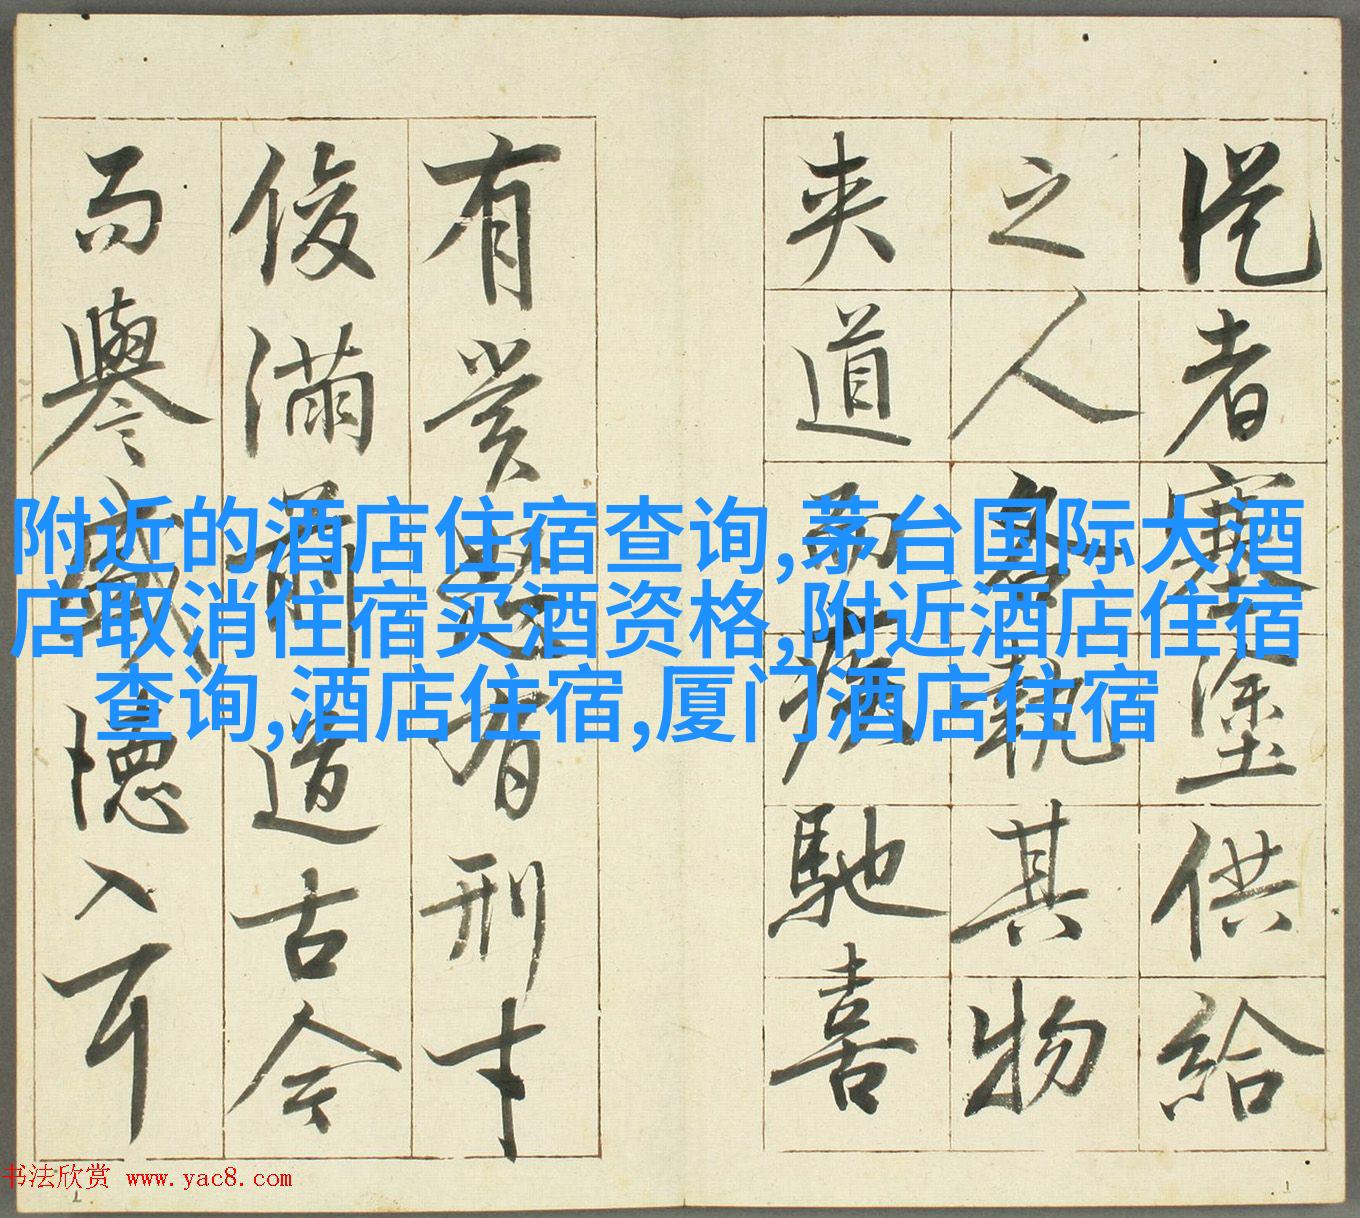 從者塞塗供給
之人各執其物
夾道而疾馳喜
有賞怒有刑才
俊滿前道古今
而譽盛德入耳
附近的酒店住宿查询,茅台国际大酒
店取消住宿买酒资格,附近酒店住宿
查询,酒店住宿,厦门酒店住宿
书法欣赏 www.yac8.com